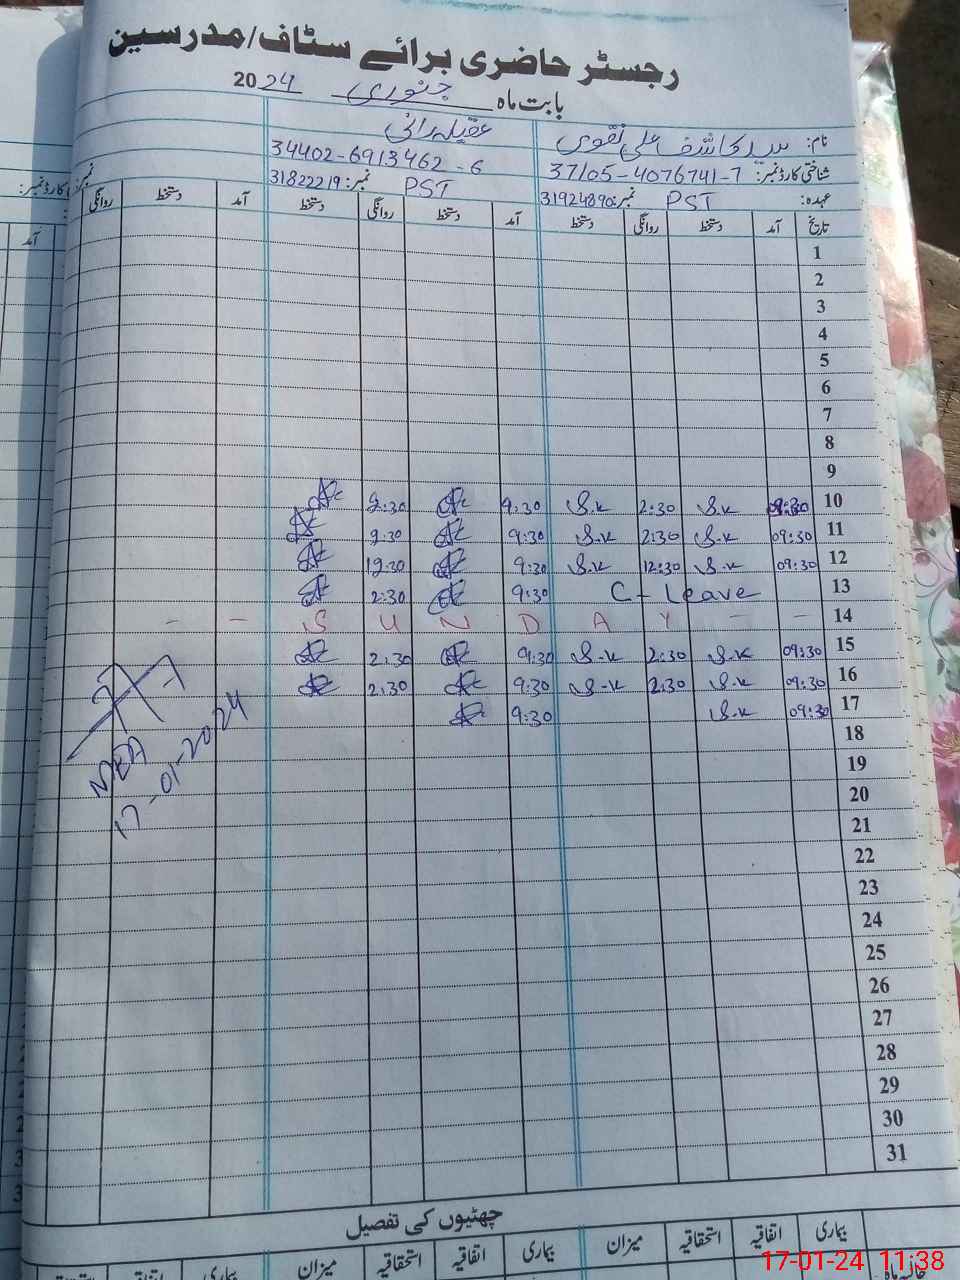 رجسٹر حاضری برائے سٹاف/مدرسین
بابت ماہ جنوری 2024
نام: سید کاشف علی نقوی عقیلہ رانی
شناختی کارڈ نمبر: 37105-4076741-7 34402-6913462-6
عہدہ: PST نمبر: 31924890 PST نمبر: 31822219
تاریخ آمد دستخط روانگی دستخط آمد دستخط روانگی دستخط آمد دستخط روانگی
1
2
3
4
5
6
7
8
9
10 09:30 S.K 2:30 S.K 9:30 2:30
11 09:30 S.K 2:30 S.K 9:30 2:30
12 09:30 S.K 12:30 S.K 9:30 12:30
13 C- Leave 9:30 2:30
14 - - S U N D A Y - -
15 09:30 S.K 2:30 S.K 9:30 2:30
16 09:30 S.K 2:30 S.K 9:30 2:30
17 09:30 S.K 9:30
MEA
17-01-2024
18
19
20
21
22
23
24
25
26
27
28
29
30
31
چھٹیوں کی تفصیل
بیماری اتفاقیہ استحقاقیہ میزان بیماری اتفاقیہ استحقاقیہ میزان بیماری
17-01-24 11:38